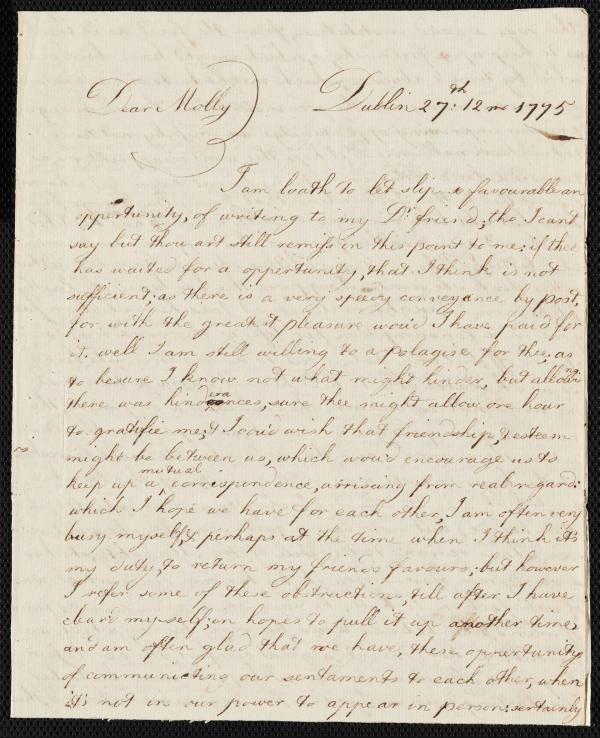 Dear Molly Dublin 27:th 12 mo 1775
I am loath to let slip a favourable an
oppertunity, of writing to my Dr friend, tho I cant
say but thou art still remiss in this point to me; if thee
has waited for a oppertunity, that I think is not
sufficient; as there is a very speedy conveyance by post.
for with the greatest pleasure wou'd I have paid for
it. well I am still willing to a polagise for thee, as
to besure I know not what might hinder, but allowing
there was hinderances, sure thee might allow one hour
to gratifie me; & I cou'd wish that friendship, & esteem
might be between us, which wou'd encourage us to
keep up a mutual correspondence, arrising from real regard:
which I hope we have for each other, I am often very
busy myself, & perhaps at the time when I think it's
my duty, to return my friends favours; but however
I refer some of these obstructions, till after I have
cleard myself; in hopes to pull it up another time,
and am often glad that we have, these oppertunity
of communicting our sentaments to each other, when
it's not in our power to appear in person; sertainly